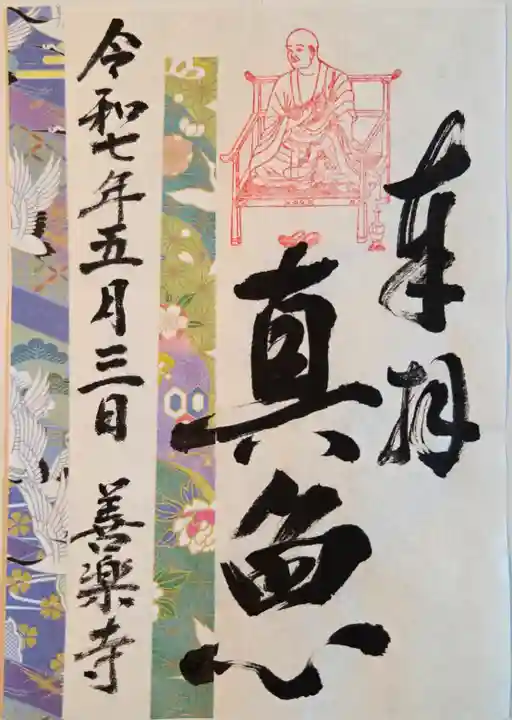 奉拝
真魚
令和七年五月三日 善楽寺